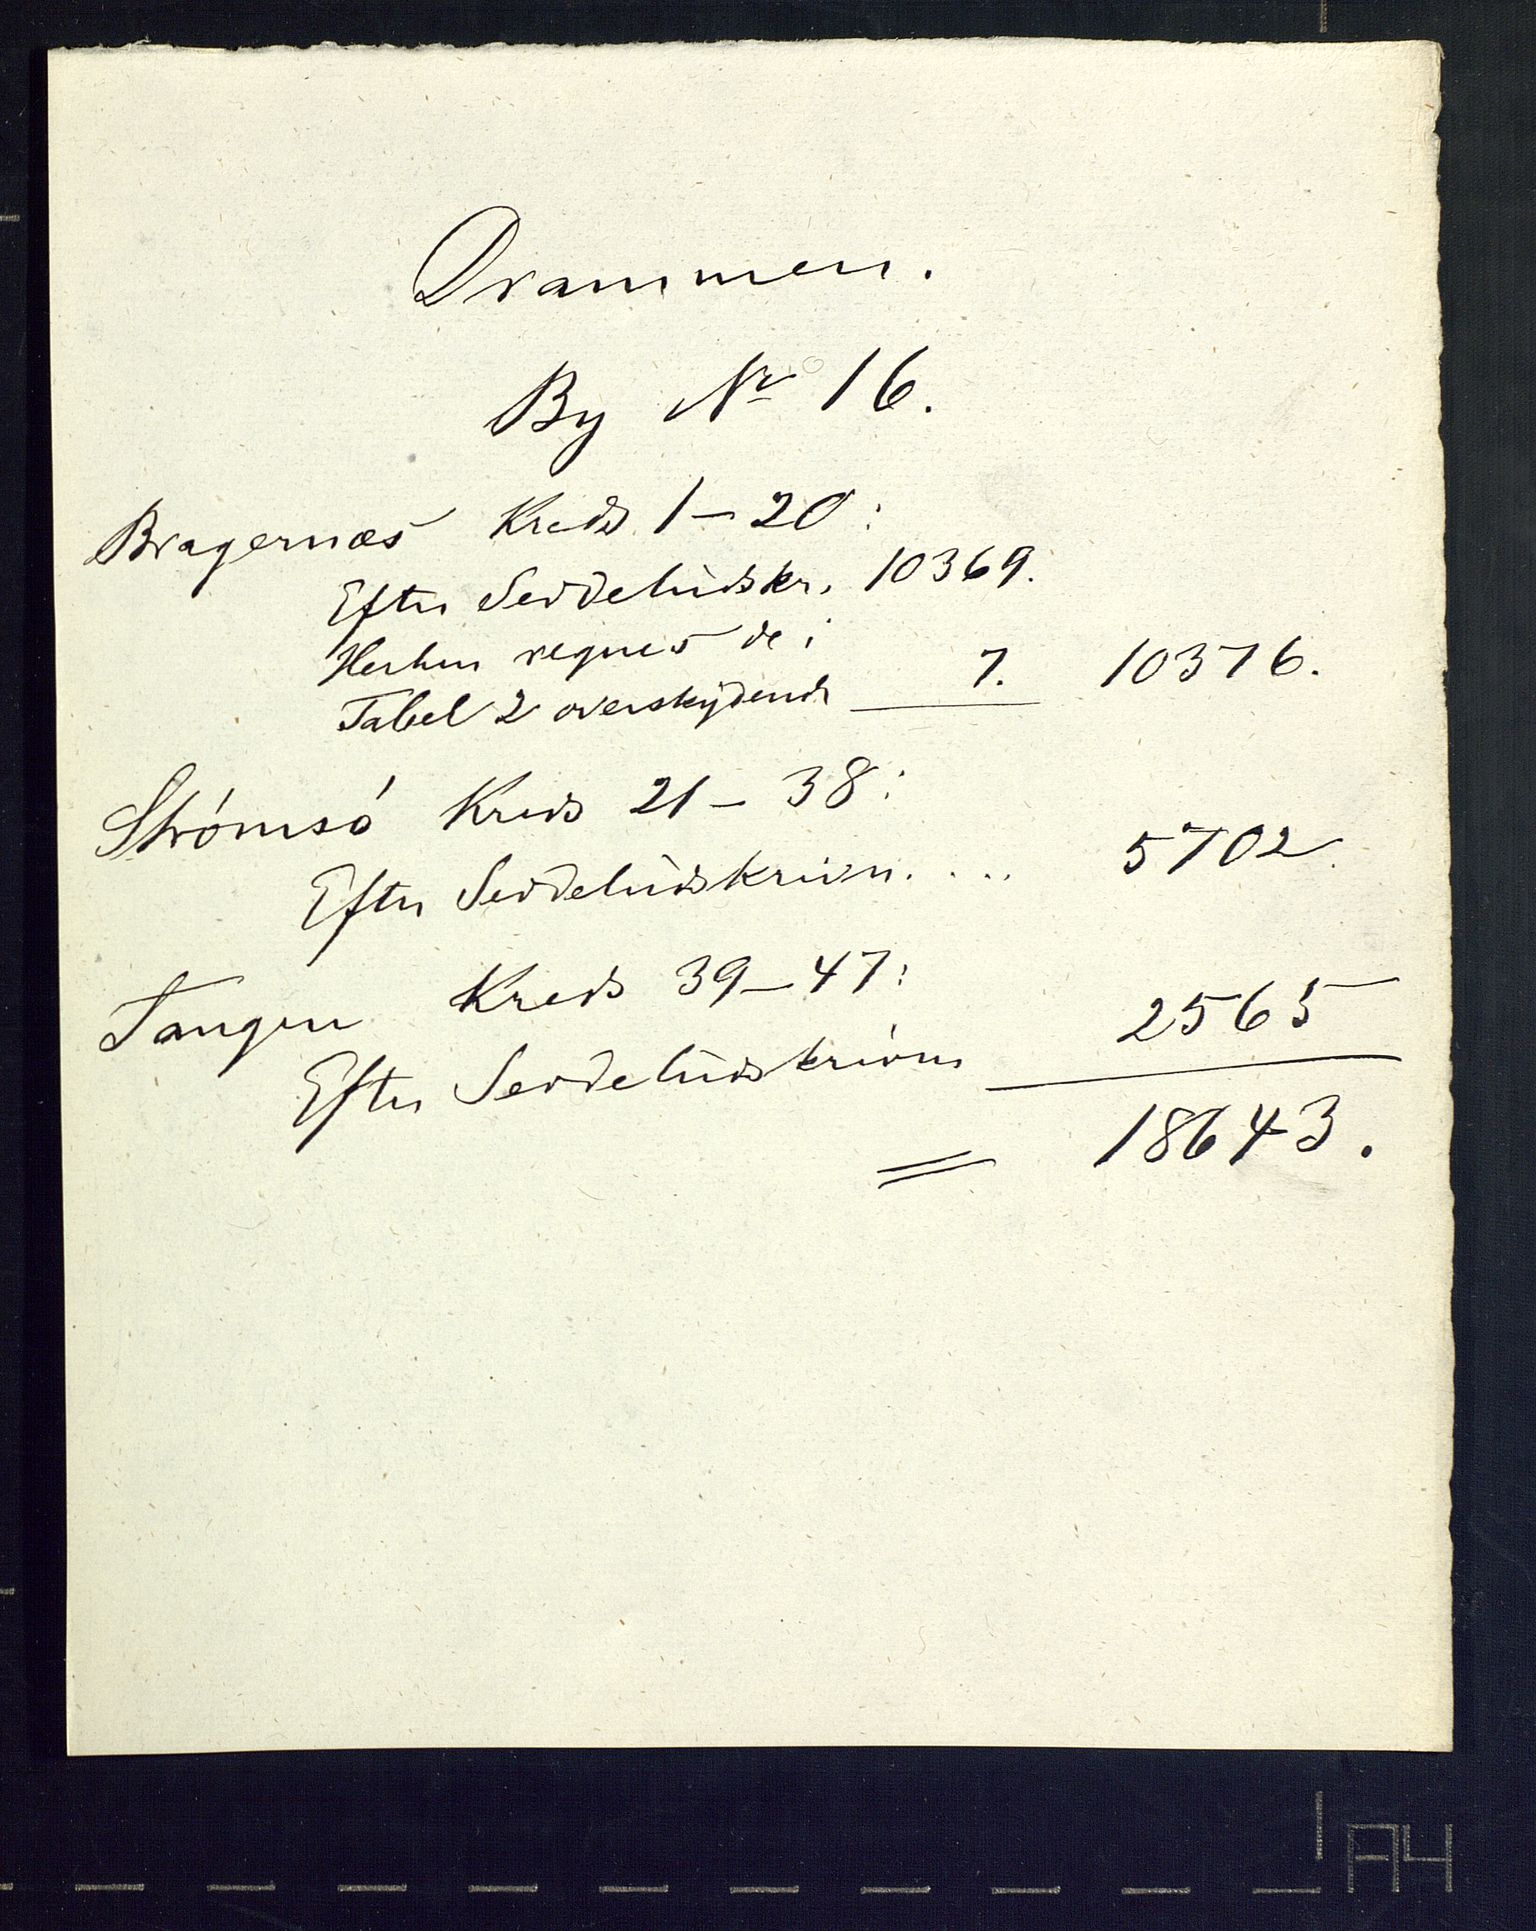 Drammen.
By Nr 16.
Bragernæs Kreds 1-20:
Efter Seddeludskr. 10369.
Herhen regnes de i
Tabel 2 overskydende 7. 10376.
Strömsö Kreds 21-38:
Efter Seddeludskrivn. ... 5702.
Tangen Kreds 39-47:
Efter Seddeludskrivn 2565
= 18643.
A4